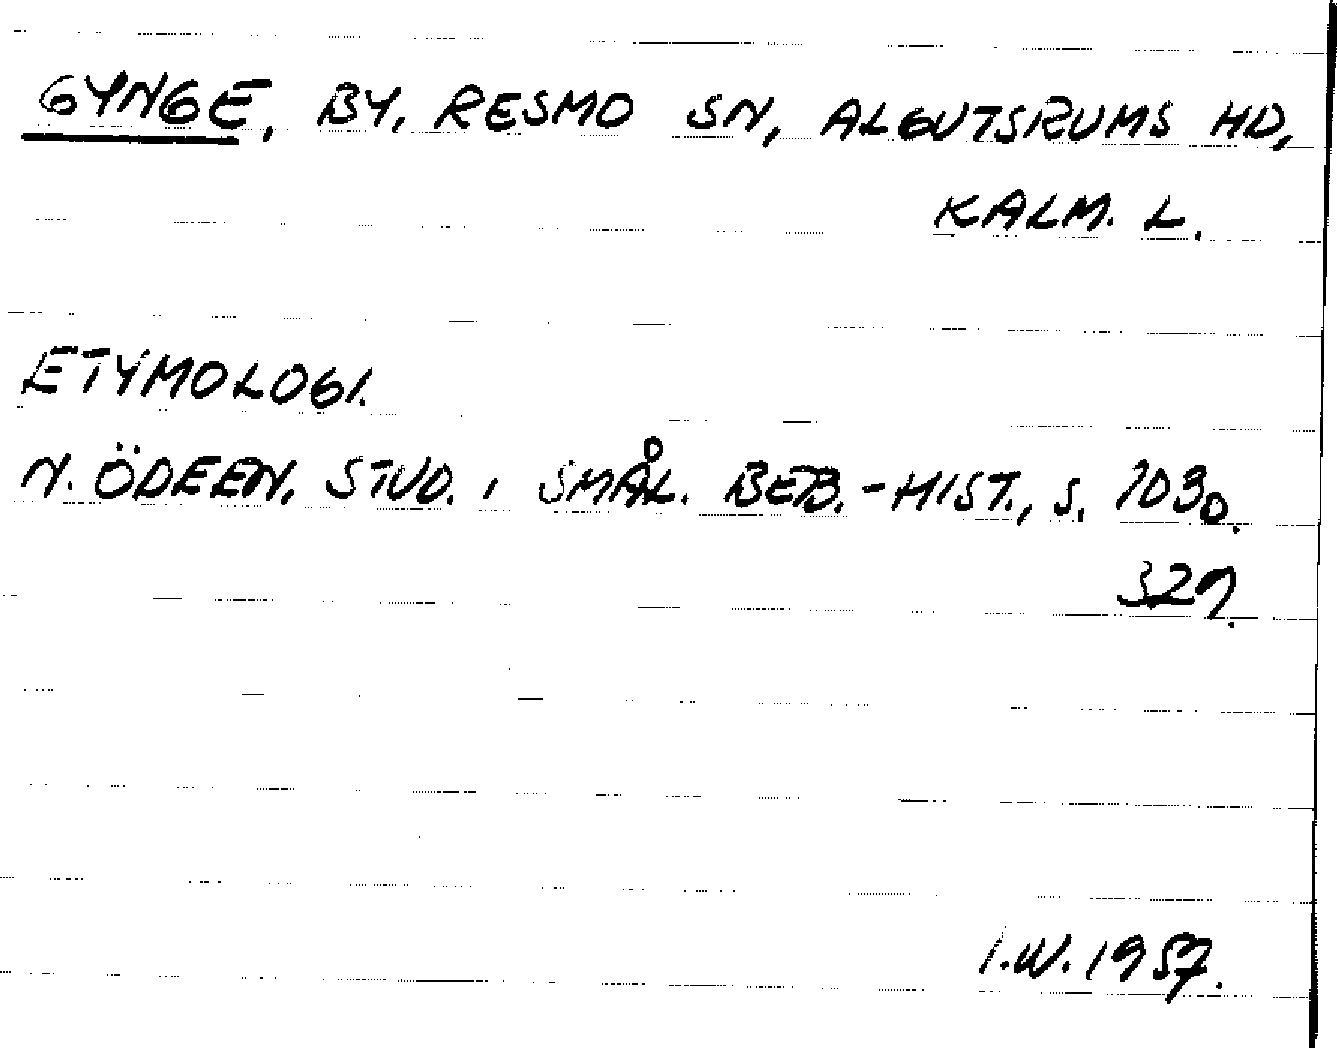 GYNGE, BY, RESMO SN, ALGUTSRUMS HD,
KALM. L.
ETYMOLOGI.
N. ÖDEEN, STUD. I SMÅL. BEB.-HIST., S. 103 o.
327.
I.W. 1957.